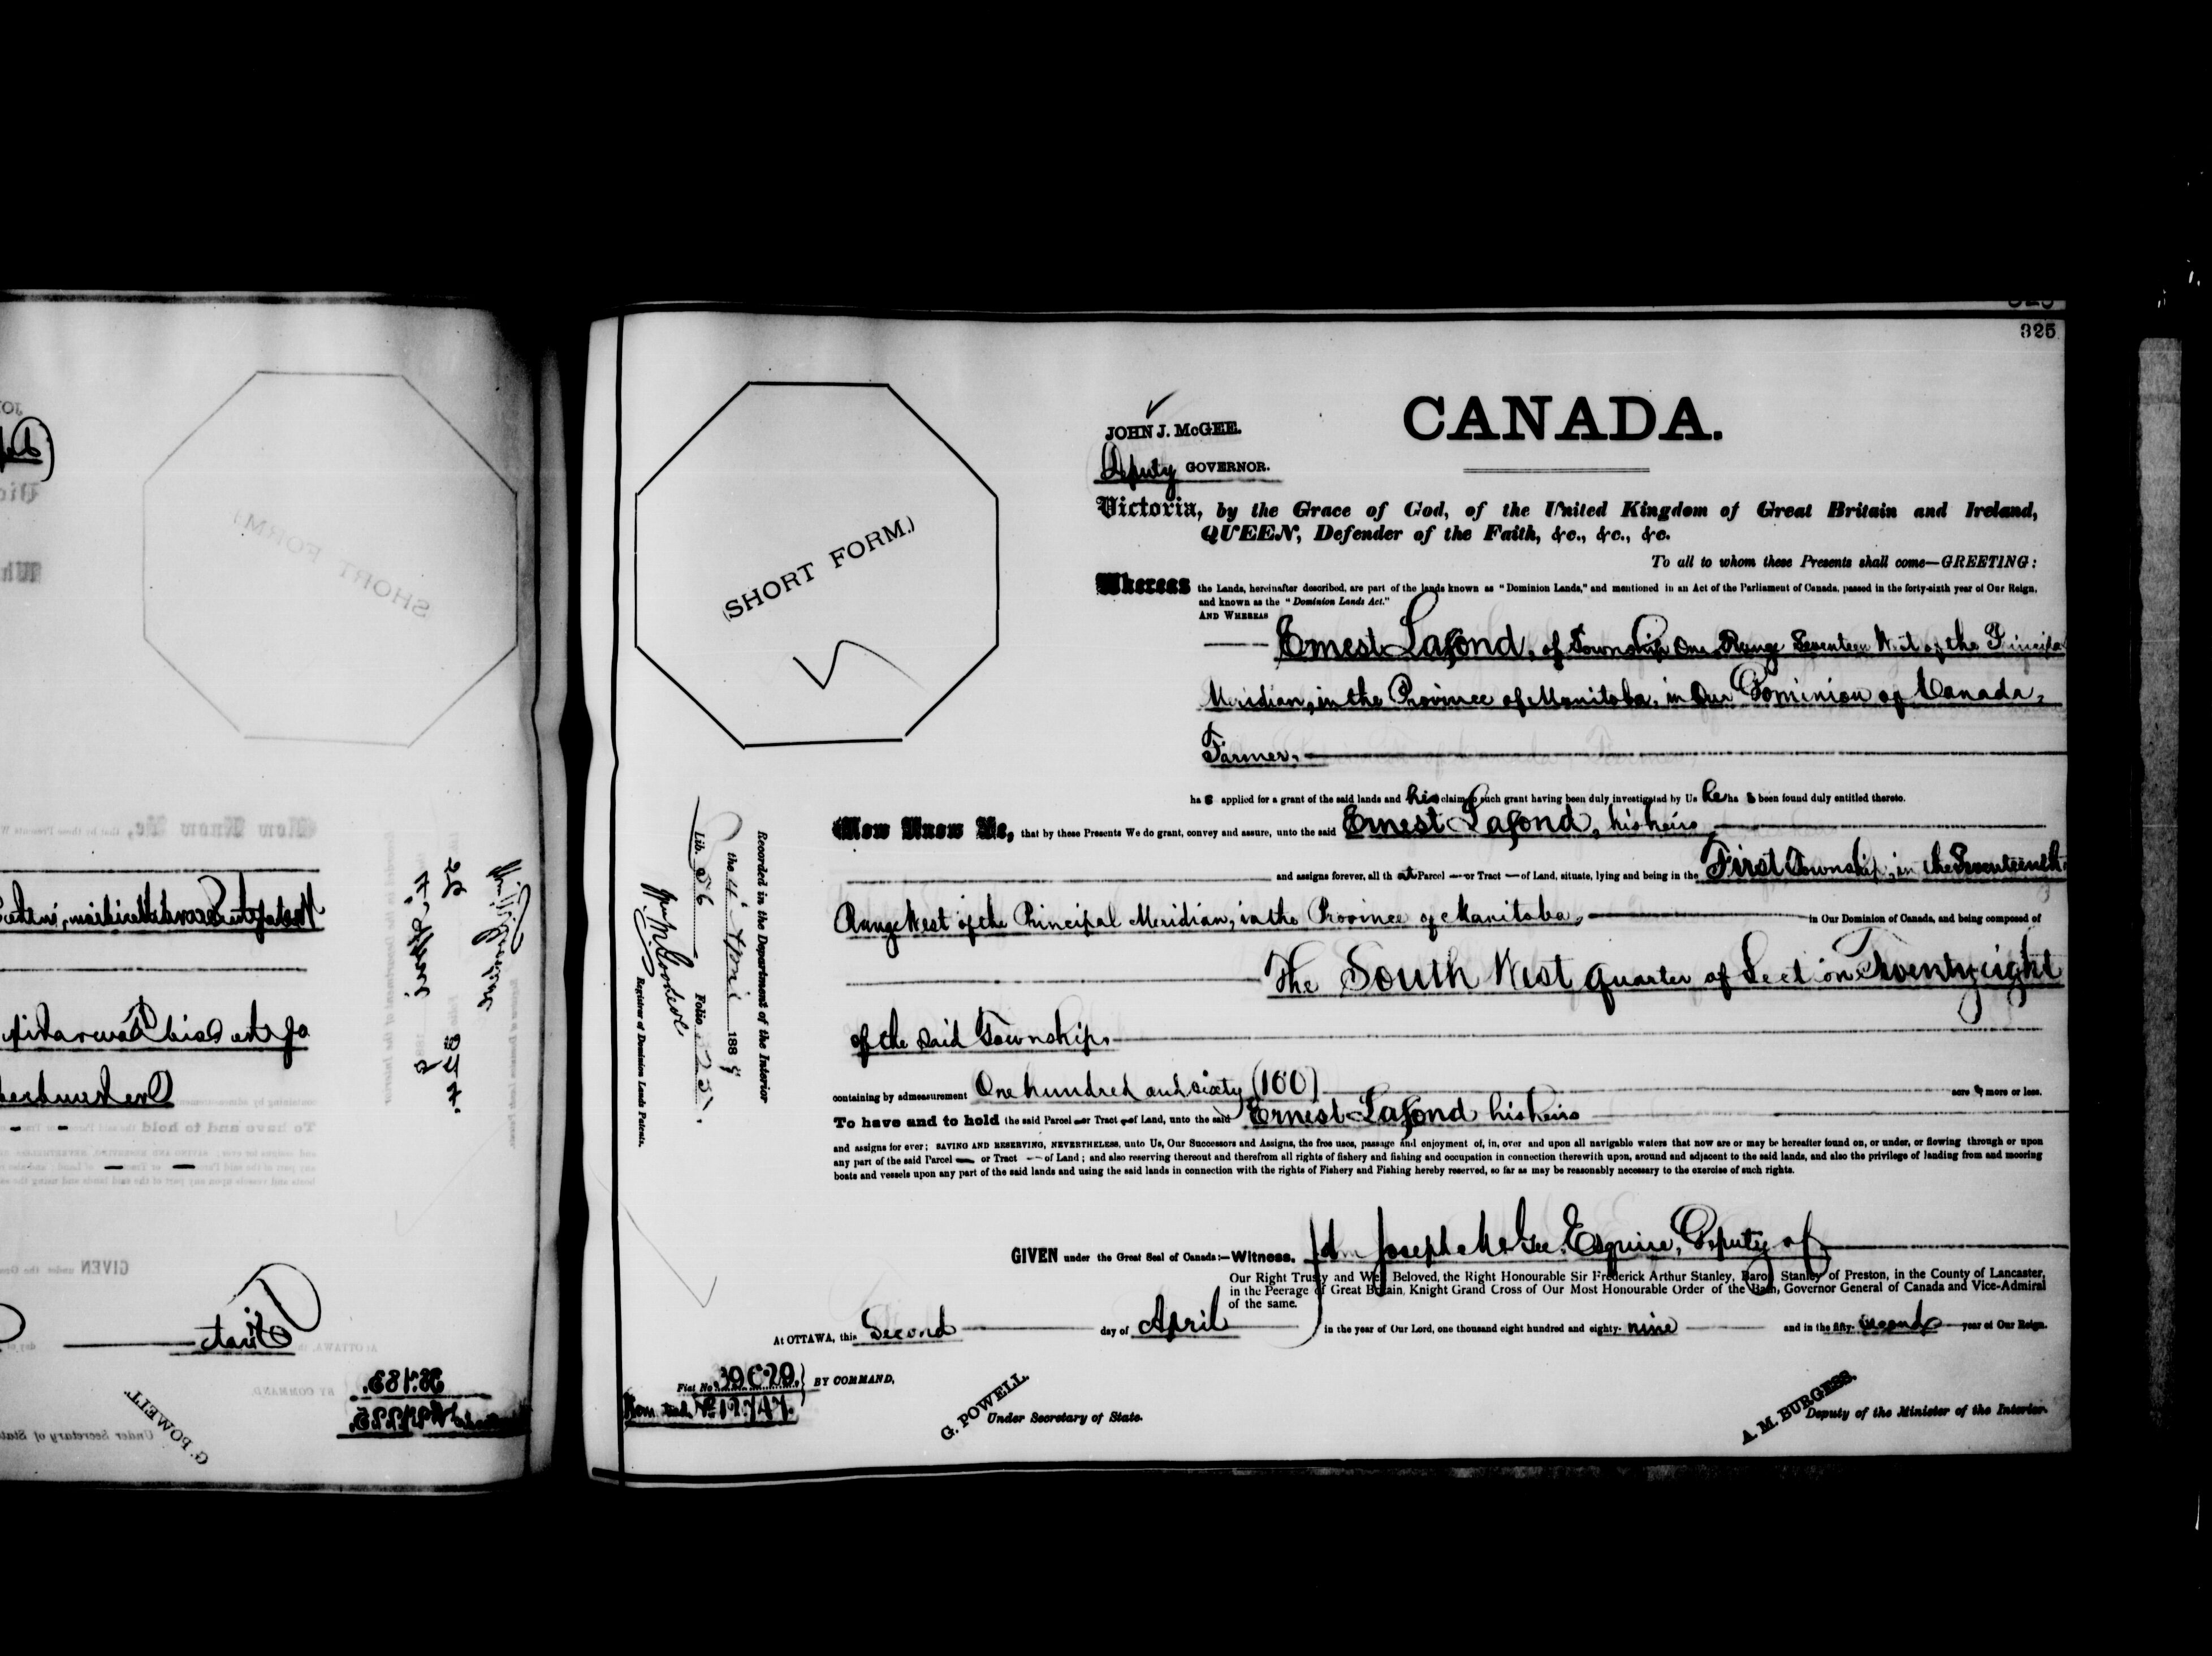 325
CANADA.
JOHN J. McGEE.
Deputy GOVERNOR.
(SHORT FORM.)
Victoria, by the Grace of God, of the United Kingdom of Great Britain and Ireland,
QUEEN, Defender of the Faith, &c., &c., &c.
To all to whom these Presents shall come—GREETING:
Whereas the Lands, hereinafter described, are part of the lands known as "Dominion Lands," and mentioned in an Act of the Parliament of Canada, passed in the forty-sixth year of Our Reign,
and known as the "Dominion Lands Act."
AND WHEREAS
Ernest Lafond, of Township One Range Seventeen West of the Principal
Meridian, in the Province of Manitoba, in Our Dominion of Canada,
Farmer,
ha s applied for a grant of the said lands and his claim to such grant having been duly investigated by Us he ha s been found duly entitled thereto.
Now Know Ye, that by these Presents We do grant, convey and assure, unto the said Ernest Lafond, his heirs
and assigns forever, all th at Parcel — or Tract — of Land, situate, lying and being in the First Township, in the Seventeenth
Range West of the Principal Meridian, in the Province of Manitoba, in Our Dominion of Canada, and being composed of
The South West quarter of Section Twenty eight
of the said Township,
containing by admeasurement One hundred and sixty (160) acre s more or less.
To have and to hold the said Parcel — or Tract — of Land, unto the said Ernest Lafond his heirs
and assigns for ever; SAVING AND RESERVING, NEVERTHELESS, unto Us, Our Successors and Assigns, the free uses, passage and enjoyment of, in, over and upon all navigable waters that now are or may be hereafter found on, or under, or flowing through or upon
any part of the said Parcel — or Tract — of Land; and also reserving thereout and therefrom all rights of fishery and fishing and occupation in connection therewith upon, around and adjacent to the said lands, and also the privilege of landing from and mooring
boats and vessels upon any part of the said lands and using the said lands in connection with the rights of Fishery and Fishing hereby reserved, so far as may be reasonably necessary to the exercise of such rights.
GIVEN under the Great Seal of Canada:—Witness, John Joseph McGee, Esquire, Deputy of
Our Right Trusty and Well Beloved, the Right Honourable Sir Frederick Arthur Stanley, Baron Stanley of Preston, in the County of Lancaster,
in the Peerage of Great Britain, Knight Grand Cross of Our Most Honourable Order of the Bath, Governor General of Canada and Vice-Admiral
of the same.
At OTTAWA, this Second day of April in the year of Our Lord, one thousand eight hundred and eighty- nine and in the fifty- second year of Our Reign.
Fiat No. BY COMMAND,
G. POWELL,
Under Secretary of State.
A. M. BURGESS,
Deputy of the Minister of the Interior.
Recorded in the Department of the Interior
the 4 April 188 9
Lib. 56 Folio 325
Registrar of Dominion Lands Patents.